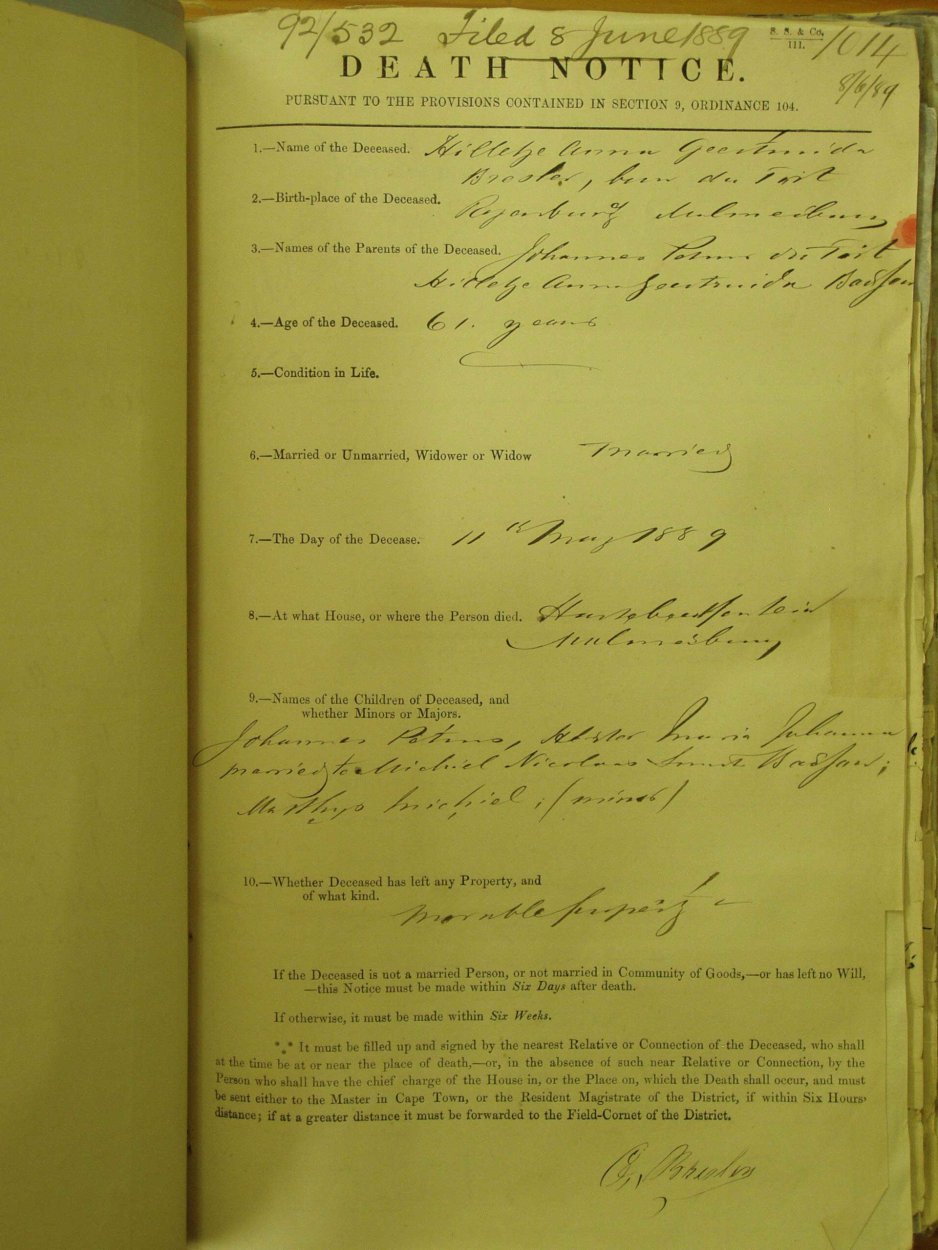 92/532 Filed 8 June 1889
S. S. & Co,
111.
1014
8/6/89
DEATH NOTICE.
PURSUANT TO THE PROVISIONS CONTAINED IN SECTION 9, ORDINANCE 104.
1.—Name of the Deceased. Hilletje Anna Geertruida
Bresler, born du Toit
2.—Birth-place of the Deceased. Malmesbury
3.—Names of the Parents of the Deceased. Johannes Petrus du Toit
Hilletje Anna Geertruida Basson
4.—Age of the Deceased. 61. years
5.—Condition in Life.
6.—Married or Unmarried, Widower or Widow Married
7.—The Day of the Decease. 11th May 1889
8.—At what House, or where the Person died. Hartebeestfontein
Malmesbury
9.—Names of the Children of Deceased, and
whether Minors or Majors.
Johannes Petrus, Hester Maria Johanna
married to Michiel Nicolaas Smut Basson;
Matthys Michiel; (minor)
10.—Whether Deceased has left any Property, and
of what kind.
Movable property
If the Deceased is not a married Person, or not married in Community of Goods,—or has left no Will,
—this Notice must be made within Six Days after death.
If otherwise, it must be made within Six Weeks.
*** It must be filled up and signed by the nearest Relative or Connection of the Deceased, who shall
at the time be at or near the place of death,—or, in the absence of such near Relative or Connection, by the
Person who shall have the chief charge of the House in, or the Place on, which the Death shall occur, and must
be sent either to the Master in Cape Town, or the Resident Magistrate of the District, if within Six Hours'
distance; if at a greater distance it must be forwarded to the Field-Cornet of the District.
Bresler